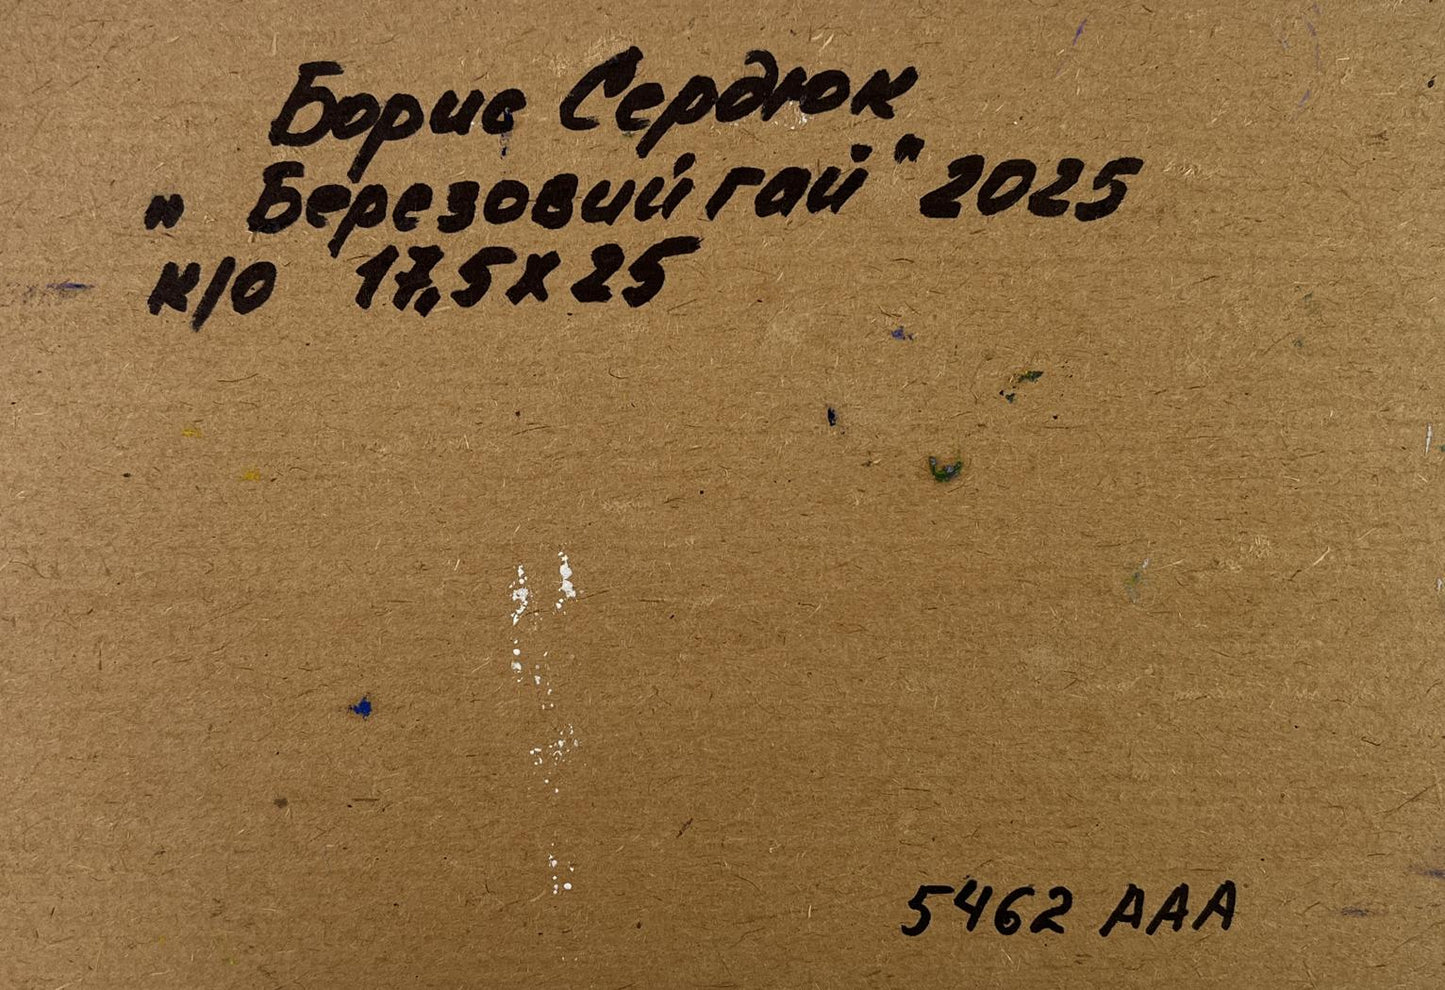 Борис Сердюк
" Березовий гай" 2025
к/о 17,5х25
5462 ААА